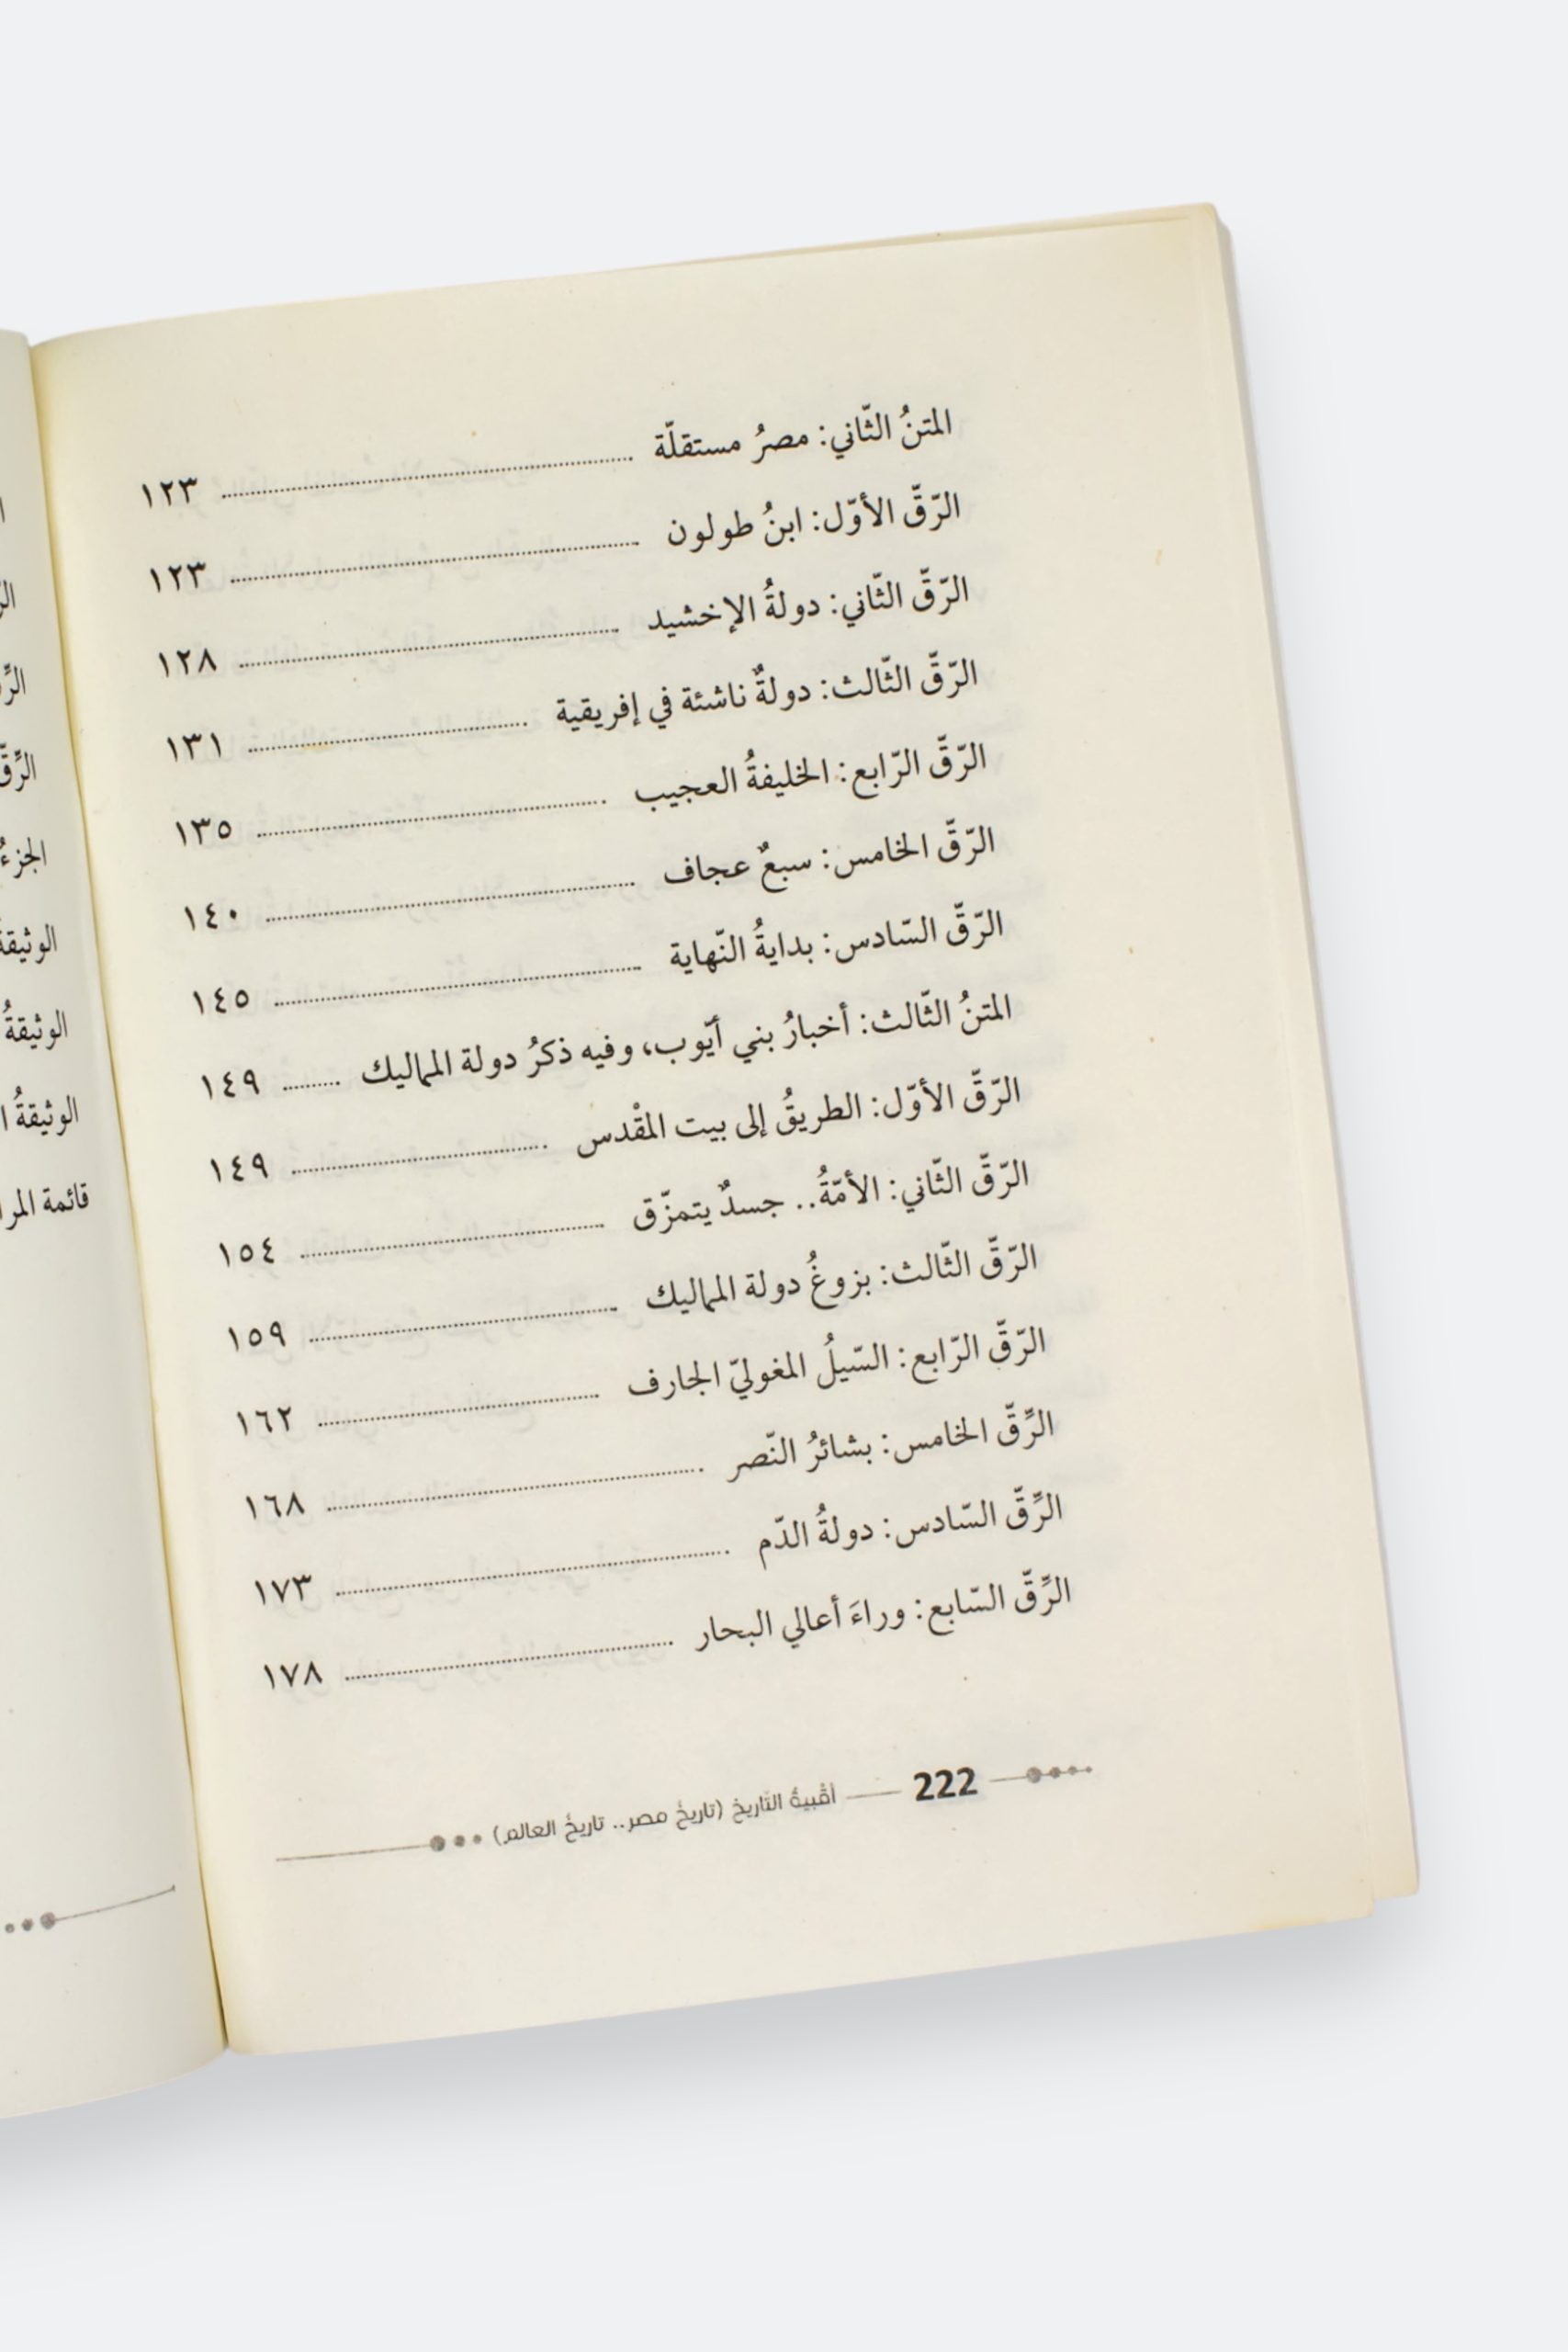 المتنُ الثّاني: مصرُ مستقلّة ........ ١٢٣
الرّقّ الأوّل: ابنُ طولون ........ ١٢٣
الرّقّ الثّاني: دولةُ الإخشيد ........ ١٢٨
الرّقّ الثّالث: دولةٌ ناشئة في إفريقية ........ ١٣١
الرّقّ الرّابع: الخليفةُ العجيب ........ ١٣٥
الرّقّ الخامس: سبعٌ عجاف ........ ١٤٠
الرّقّ السّادس: بدايةُ النّهاية ........ ١٤٥
المتنُ الثّالث: أخبارُ بني أيّوب، وفيه ذكرُ دولة المماليك ........ ١٤٩
الرّقّ الأوّل: الطريقُ إلى بيت المقْدس ........ ١٤٩
الرّقّ الثّاني: الأمّةُ.. جسدٌ يتمزّق ........ ١٥٤
الرّقّ الثّالث: بزوغُ دولة المماليك ........ ١٥٩
الرّقّ الرّابع: السّيلُ المغوليّ الجارف ........ ١٦٢
الرِّقّ الخامس: بشائرُ النّصر ........ ١٦٨
الرِّقّ السّادس: دولةُ الدّم ........ ١٧٣
الرِّقّ السّابع: وراءَ أعالي البحار ........ ١٧٨
222 أقْبيةُ التّاريخ (تاريخُ مصر.. تاريخُ العالم)
الجزءُ
الوثيقةُ
الوثيقةُ
الوثيقةُ
قائمة